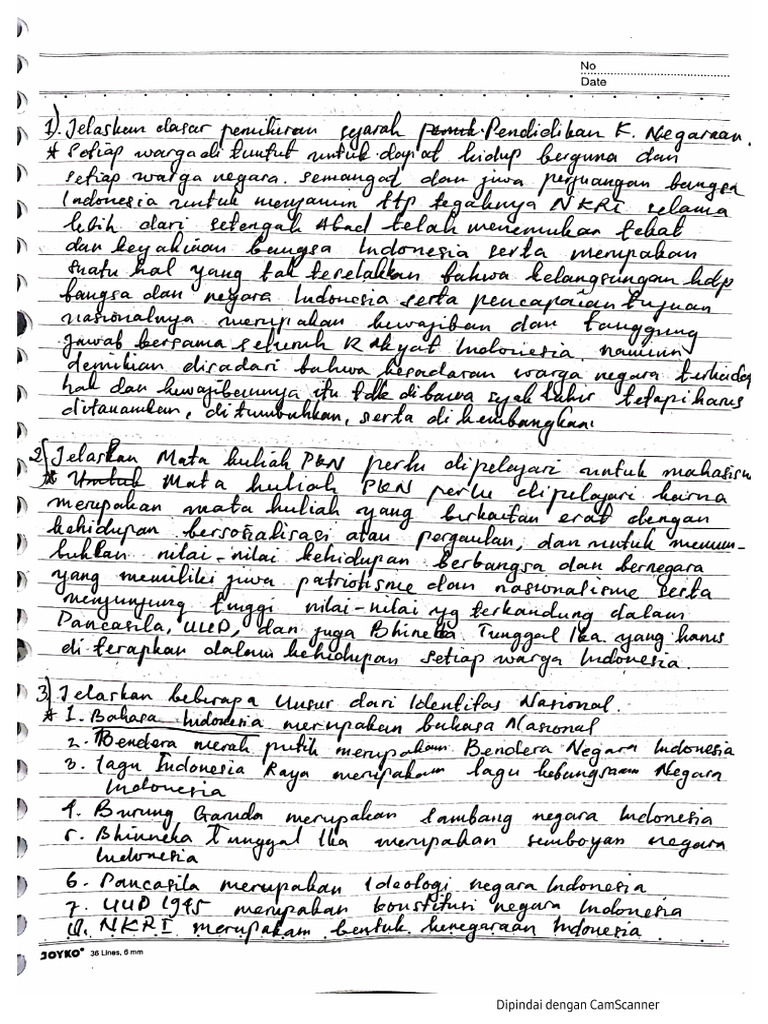 No
Date
1). Jelaskan dasar pemikiran syarah Pendidikan K. Negaraan.
* setiap warga di tuntut untuk dapat hidup berguna dan
setiap warga negara. semangat dan jiwa perjuangan bangsa
Indonesia untuk menjamin ttp tegaknya NKRI selama
lebih dari setengah Abad telah menemukan tekat
dan keyakinan bangsa Indonesia serta merupakan
suatu hal yang tak terelakkan bahwa kelangsungan hdp
bangsa dan negara Indonesia serta pencapaian tujuan
nasionalnya merupakan kewajiban dan tanggung
jawab bersama seluruh Rakyat Indonesia. namun
demikian disadari bahwa kesadaran warga negara terhadap
hak dan kewajibannya itu tdk dibawa sejak lahir tetapi harus
ditanamkan, ditumbuhkan, serta di kembangkan.
2) Jelaskan Mata kuliah PKN perlu dipelajari untuk mahasisw
* Untuk Mata kuliah PKN perlu dipelajari karna
merupakan mata kuliah yang berkaitan erat dengan
kehidupan bersosialisasi atau pergaulan, dan untuk menum-
buhkan nilai-nilai kehidupan berbangsa dan bernegara
yang memiliki jiwa patriotisme dan nasionalisme serta
menjunjung tinggi nilai-nilai yg terkandung dalam
Pancasila, UUD, dan juga Bhineka Tunggal Ika. yang harus
di terapkan dalam kehidupan setiap warga Indonesia.
3) Jelaskan beberapa Unsur dari Identitas Nasional.
* 1. Bahasa Indonesia merupakan bahasa Nasional
2. Bendera merah putih merupakan Bendera Negara Indonesia
3. lagu Indonesia Raya merupakan lagu kebangsaan Negara
Indonesia
4. Burung Garuda merupakan lambang negara Indonesia
5. Bhinneka Tunggal Ika merupakan semboyan negara
Indonesia
6. Pancasila merupakan Ideologi negara Indonesia
7. UUD 1945 merupakan konstitusi negara Indonesia
NKRI merupakan bentuk kenegaraan Indonesia
JOYKO® 36 Lines, 6 mm
Dipindai dengan CamScanner